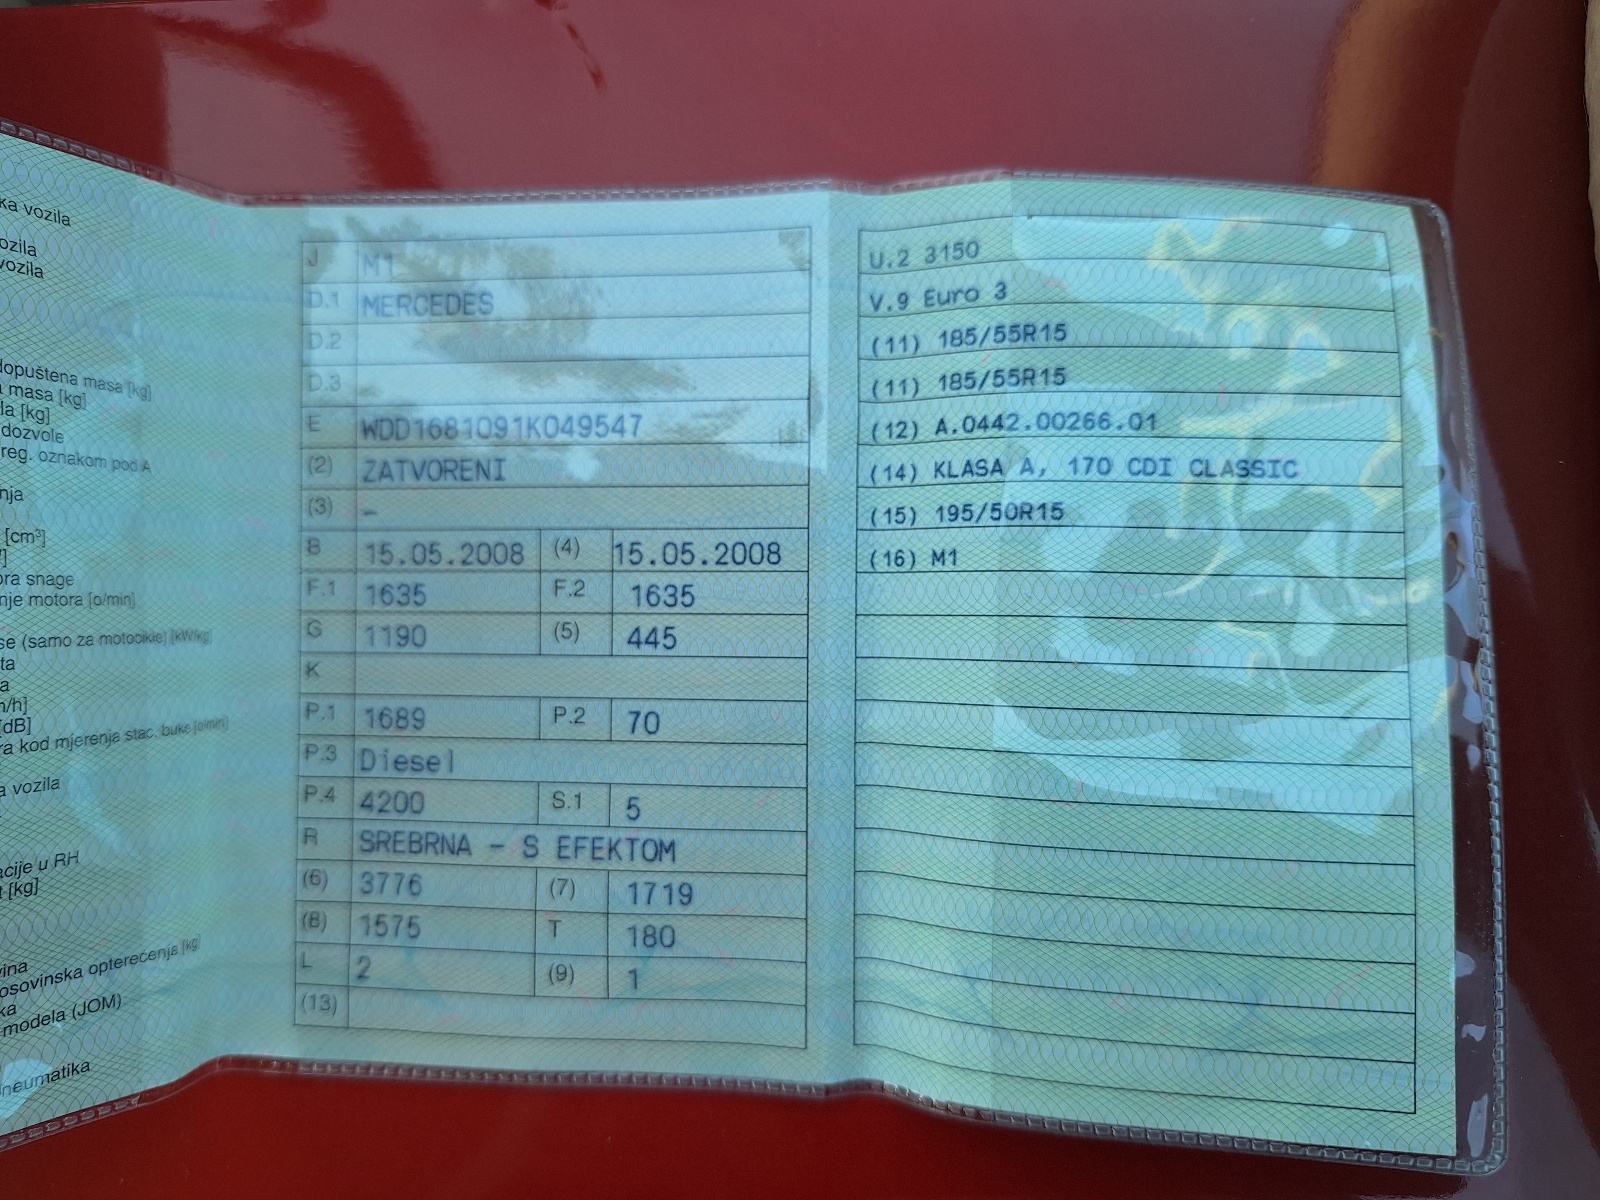 ka vozila
ozila
vozila
dopuštena masa [kg]
masa [kg]
la [kg]
dozvole
reg. oznakom pod A
nja
[cm³]
ora snage
nje motora [o/min]
se (samo za motocikle) [kW/kg]
ta
a
n/h]
[dB]
ra kod mjerenja stac. buke [o/min]
a vozila
acije u RH
t [kg]
vina
osovinska opterećenja [kg]
ka
modela (JOM)
neumatika
J M1
D.1 MERCEDES
D.2
D.3
E WDD1681091K049547
(2) ZATVORENI
(3) –
B 15.05.2008 (4) 15.05.2008
F.1 1635 F.2 1635
G 1190 (5) 445
K
P.1 1689 P.2 70
P.3 Diesel
P.4 4200 S.1 5
R SREBRNA – S EFEKTOM
(6) 3776 (7) 1719
(8) 1575 T 180
L 2 (9) 1
(13)
U.2 3150
V.9 Euro 3
(11) 185/55R15
(11) 185/55R15
(12) A.0442.00266.01
(14) KLASA A, 170 CDI CLASSIC
(15) 195/50R15
(16) M1